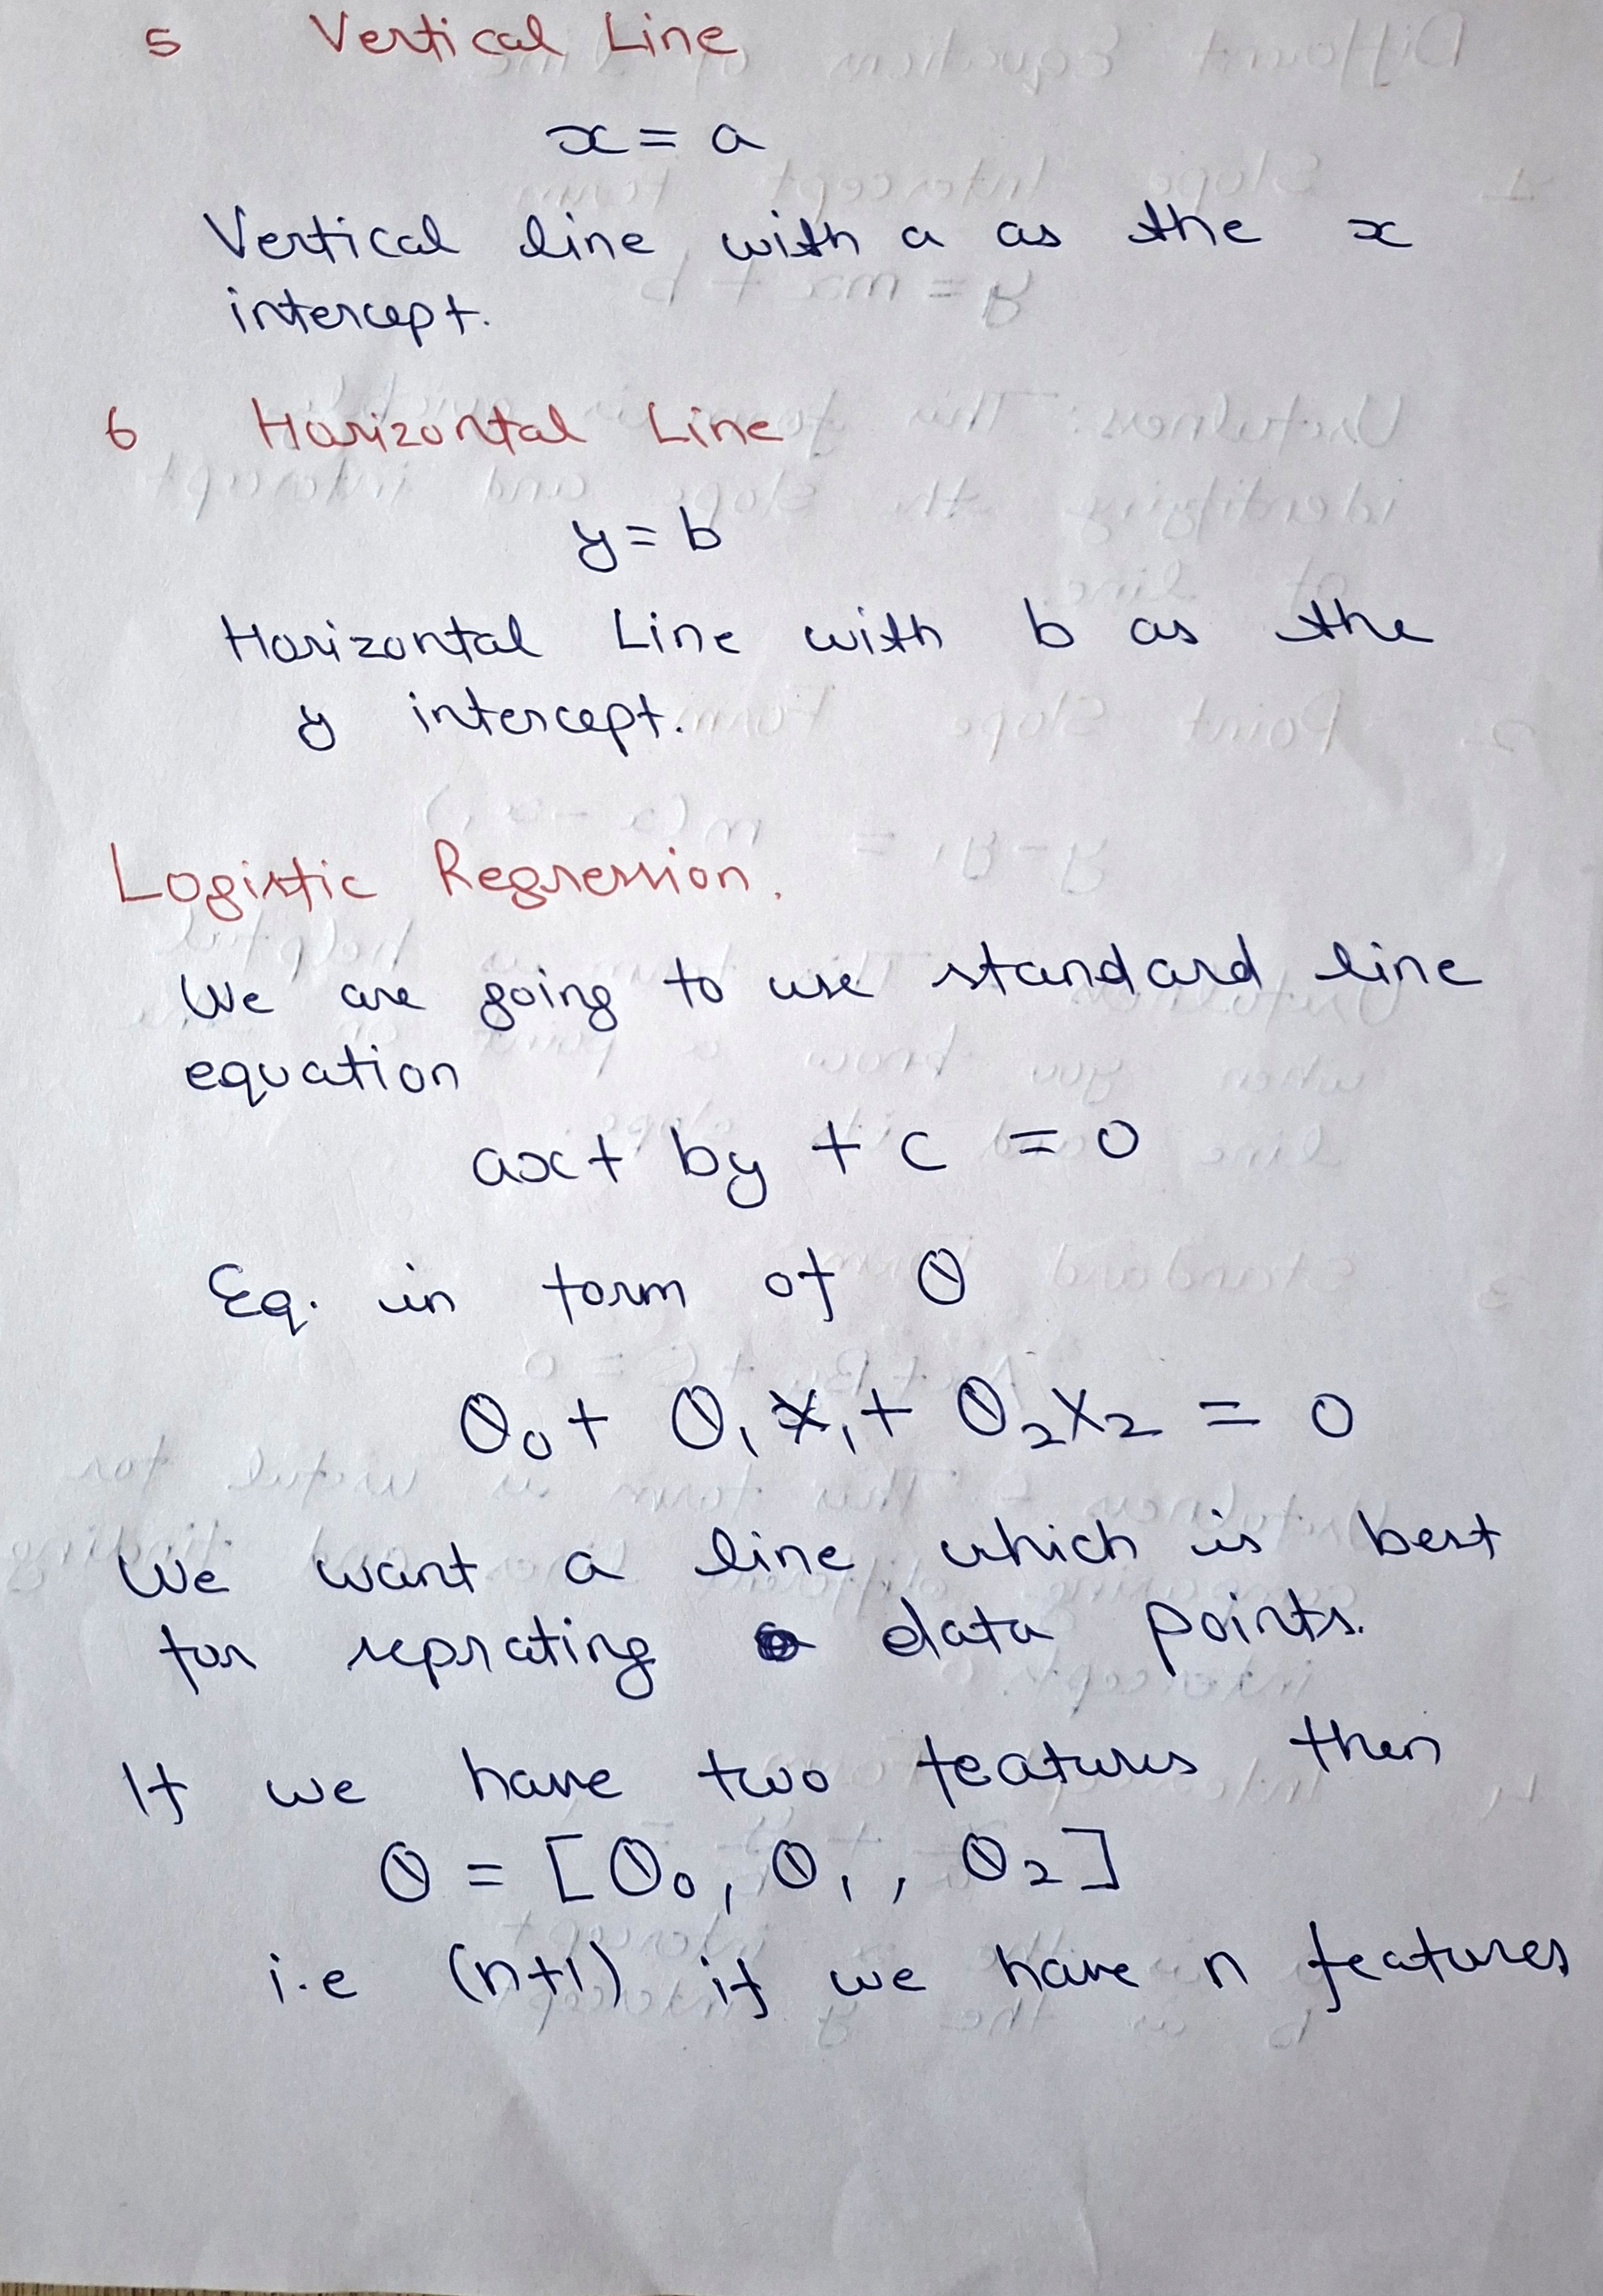 5 Vertical Line
x = a
Vertical line with a as the x
intercept.
6 Horizontal Line
y = b
Horizontal Line with b as the
y intercept.
Logistic Regression.
We are going to use standard line
equation
ax + by + c = 0
Eq. in form of θ
θ₀ + θ₁x₁ + θ₂x₂ = 0
We want a line which is best
for reprating data points.
If we have two features then
θ = [θ₀, θ₁, θ₂]
i.e (n+1) if we have n features